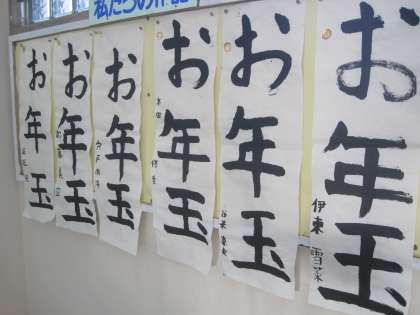 私たちの作品
お年玉
伊東 雪菜
お年玉
お年玉
お年玉
お年玉
お年玉